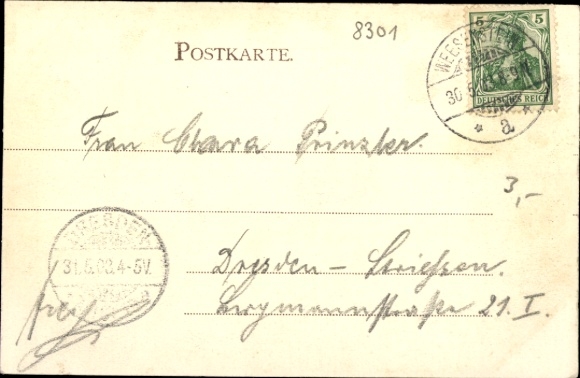 8301
POSTKARTE.
5 5
DEUTSCHES REICH
WEESENSTEIN
30.5.
a
Frau Clara Prinzler.
3,-
DRESDEN
31.5.03.4-5V.
Dresden – Striessen.
Bergmannstraße 21. I.